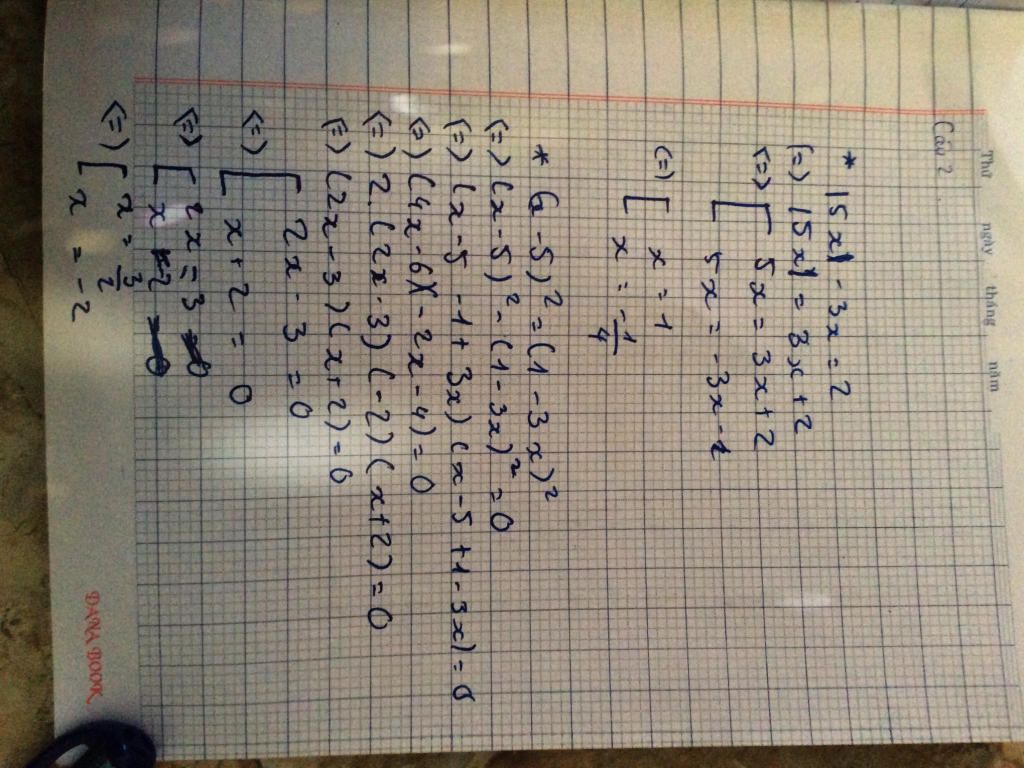 Thứ ngày tháng năm
Câu 2
* |5x| - 3x = 2
(=) |5x| = 3x + 2
(=) [ 5x = 3x + 2
5x = -3x - 2
(=) [ x = 1
x = -1/4
* (x - 5)² = (1 - 3x)²
(=) (x - 5)² - (1 - 3x)² = 0
(=) (x - 5 - 1 + 3x) (x - 5 + 1 - 3x) = 0
(=) (4x - 6)(- 2x - 4) = 0
(=) 2. (2x - 3) (-2) (x + 2) = 0
(=) (2x - 3) (x + 2) = 0
(=) [ 2x - 3 = 0
x + 2 = 0
(=) [ 2x = 3
x = -2
(=) [ x = 3/2
x = -2
DANA BOOK